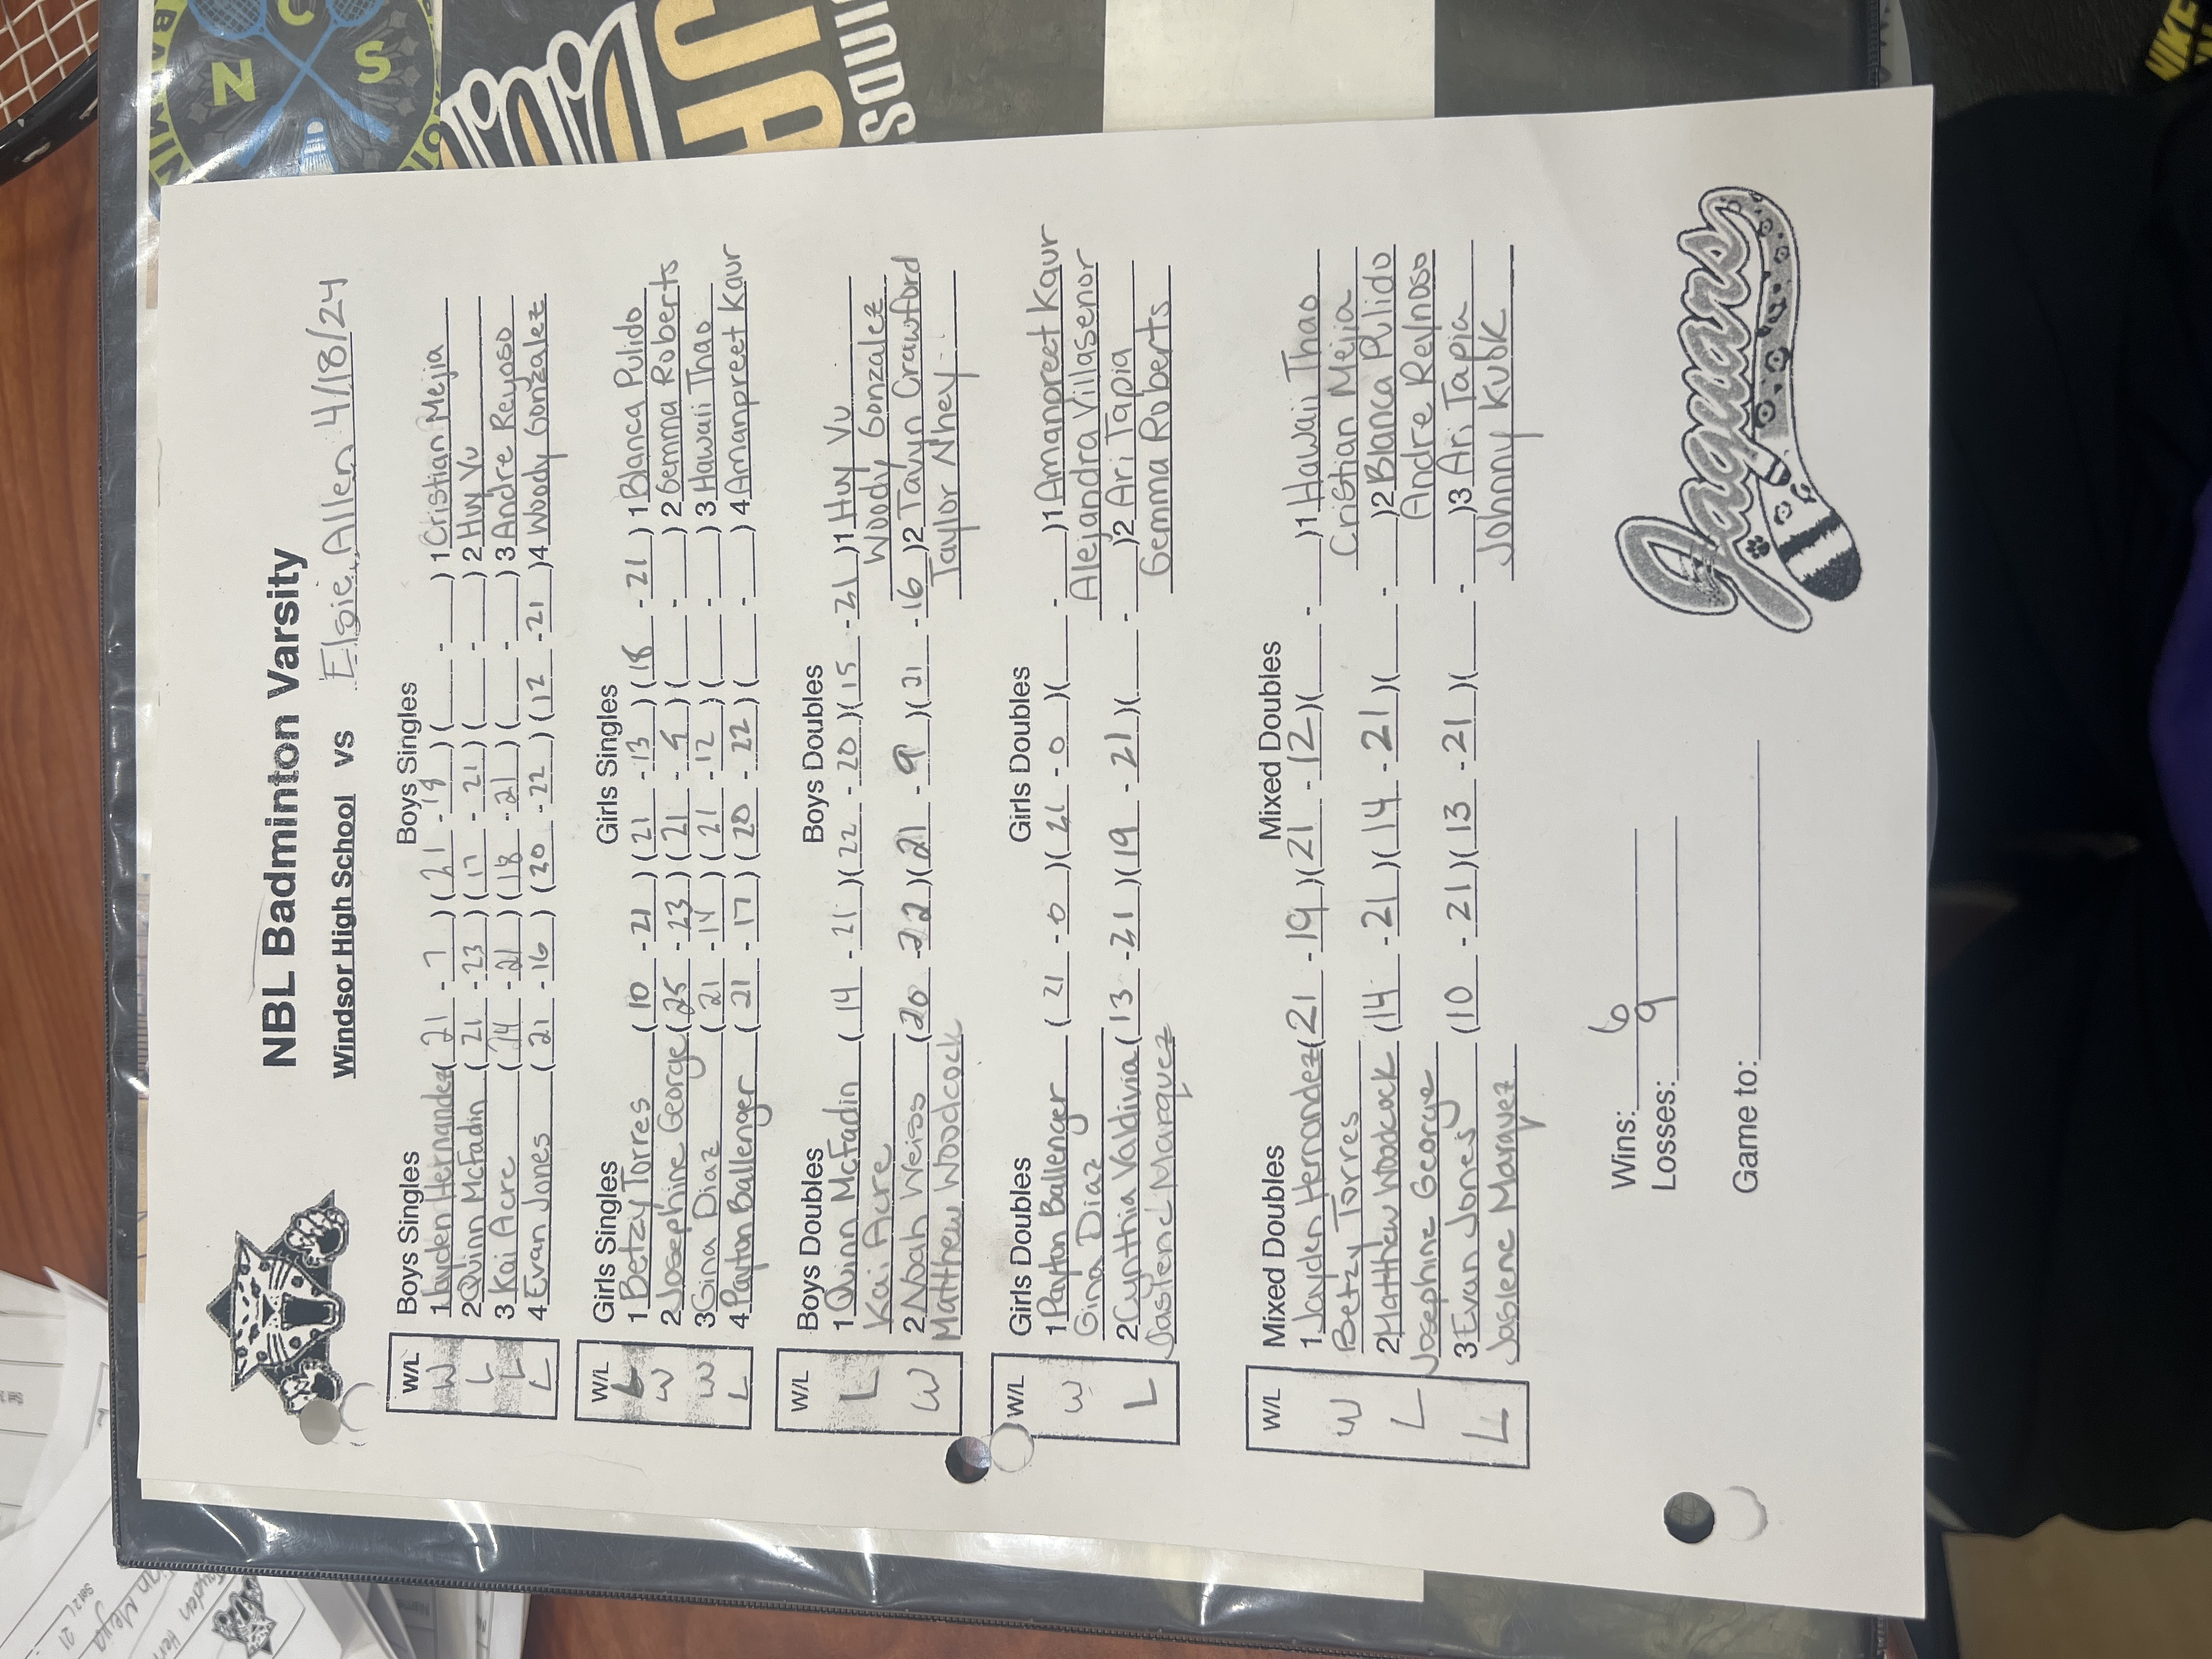 NBL Badminton Varsity
Windsor High School vs Elsie Allen 4/18/24
W/L Boys Singles Boys Singles
W 1 Jayden Hernandez ( 21 - 7 ) ( 21 - 19 ) ( - ) 1 Cristian Mejia
L 2 Quinn McFadin ( 21 - 23 ) ( 17 - 21 ) ( - ) 2 Huy Vu
L 3 Kai Acre ( 14 - 21 ) ( 18 - 21 ) ( - ) 3 Andre Reyoso
L 4 Evan Jones ( 21 - 16 ) ( 20 - 22 ) ( 12 - 21 ) 4 Woody Gonzalez
W/L Girls Singles Girls Singles
L 1 Betzy Torres ( 10 - 21 ) ( 21 - 13 ) ( 18 - 21 ) 1 Blanca Pulido
W 2 Josephine George ( 25 - 23 ) ( 21 - ) ( - ) 2 Gemma Roberts
W 3 Gina Diaz ( 21 - 14 ) ( 21 - 12 ) ( - ) 3 Hawaii Thao
L 4 Payton Ballenger ( 21 - 17 ) ( 20 - 22 ) ( - ) 4 Amanpreet Kaur
W/L Boys Doubles Boys Doubles
L 1 Quinn McFadin ( 14 - 21 ) ( 22 - 20 ) ( 15 - 21 ) 1 Huy Vu
Kai Acre Woody Gonzalez
W 2 Noah Weiss ( 20 - 22 ) ( 21 - 9 ) ( 21 - 16 ) 2 Tavyn Crawford
Matthew Woodcock Taylor Nhey
W/L Girls Doubles Girls Doubles
W 1 Payton Ballenger ( 21 - 0 ) ( 21 - 0 ) ( - ) 1 Amanpreet Kaur
Gina Diaz Alejandra Villasenor
L 2 Cynthia Valdivia ( 13 - 21 ) ( 19 - 21 ) ( - ) 2 Ari Tapia
Jaslene Marquez Gemma Roberts
W/L Mixed Doubles Mixed Doubles
W 1 Jayden Hernandez ( 21 - 19 ) ( 21 - 12 ) ( - ) 1 Hawaii Thao
Betzy Torres Cristian Mejia
L 2 Matthew Woodcock ( 14 - 21 ) ( 14 - 21 ) ( - ) 2 Blanca Pulido
Josephine George Andre Reynoso
L 3 Evan Jones ( 10 - 21 ) ( 13 - 21 ) ( - ) 3 Ari Tapia
Jaslene Marquez Johnny Kubk
Wins: 6
Losses: 9
Game to:
Jaguars
N C S
JA
NIKE